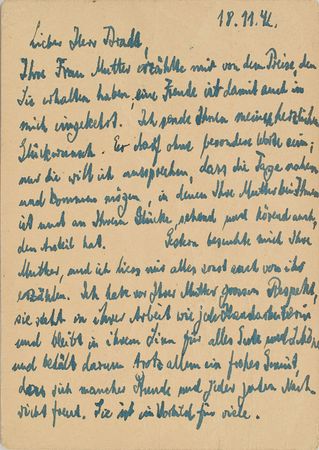 18.11.42.
Lieber Herr Bradtl,
Ihre Frau Mutter erzählte mir von dem Preise, den
Sie erhalten haben, eine Freude ist damit auch in
mich eingekehrt. Ich sende Ihnen meinen herzlichen
Glückwunsch. Er darf ohne besondere Worte sein;
nur die will ich aussprechen, dass die Tage nahen
und kommen mögen, in denen Ihre Mutter bei Ihnen
ist und an Ihrem Glücke sehend und hörend auch
den Anteil hat. Gestern besuchte mich Ihre
Mutter, und ich liess mir alles sonst auch von ihr
erzählen. Ich habe vor Ihrer Mutter grossen Respekt,
sie steht in ihrer Arbeit wie jede Handarbeiterin
und bleibt in ihrem Sinn für alles Gute und Schöne
und behält darum trotz allem ein frohes Gemüt,
das sich mancher Stunde und jeder guten Nach-
richt freut. Sie ist ein Vorbild für viele.